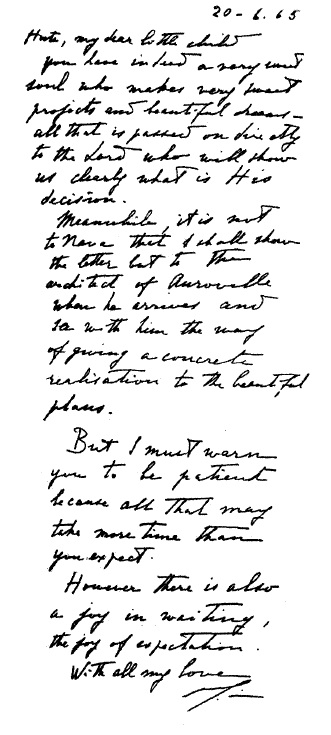 20-6.65
Huta, my dear little child
you have indeed a very sweet
soul who makes very sweet
projects and beautiful dreams -
all that is passed on directly
to the Lord who will show
us clearly what is His
decision.
Meanwhile, it is not
to Nava that I shall show
the letter but to the
architect of Auroville
when he arrives and
see with him the way
of giving a concrete
realisation to the beautiful
plans.
But I must warn
you to be patient
because all that may
take more time than
you expect.
However there is also
a joy in waiting,
the joy of expectation.
With all my love